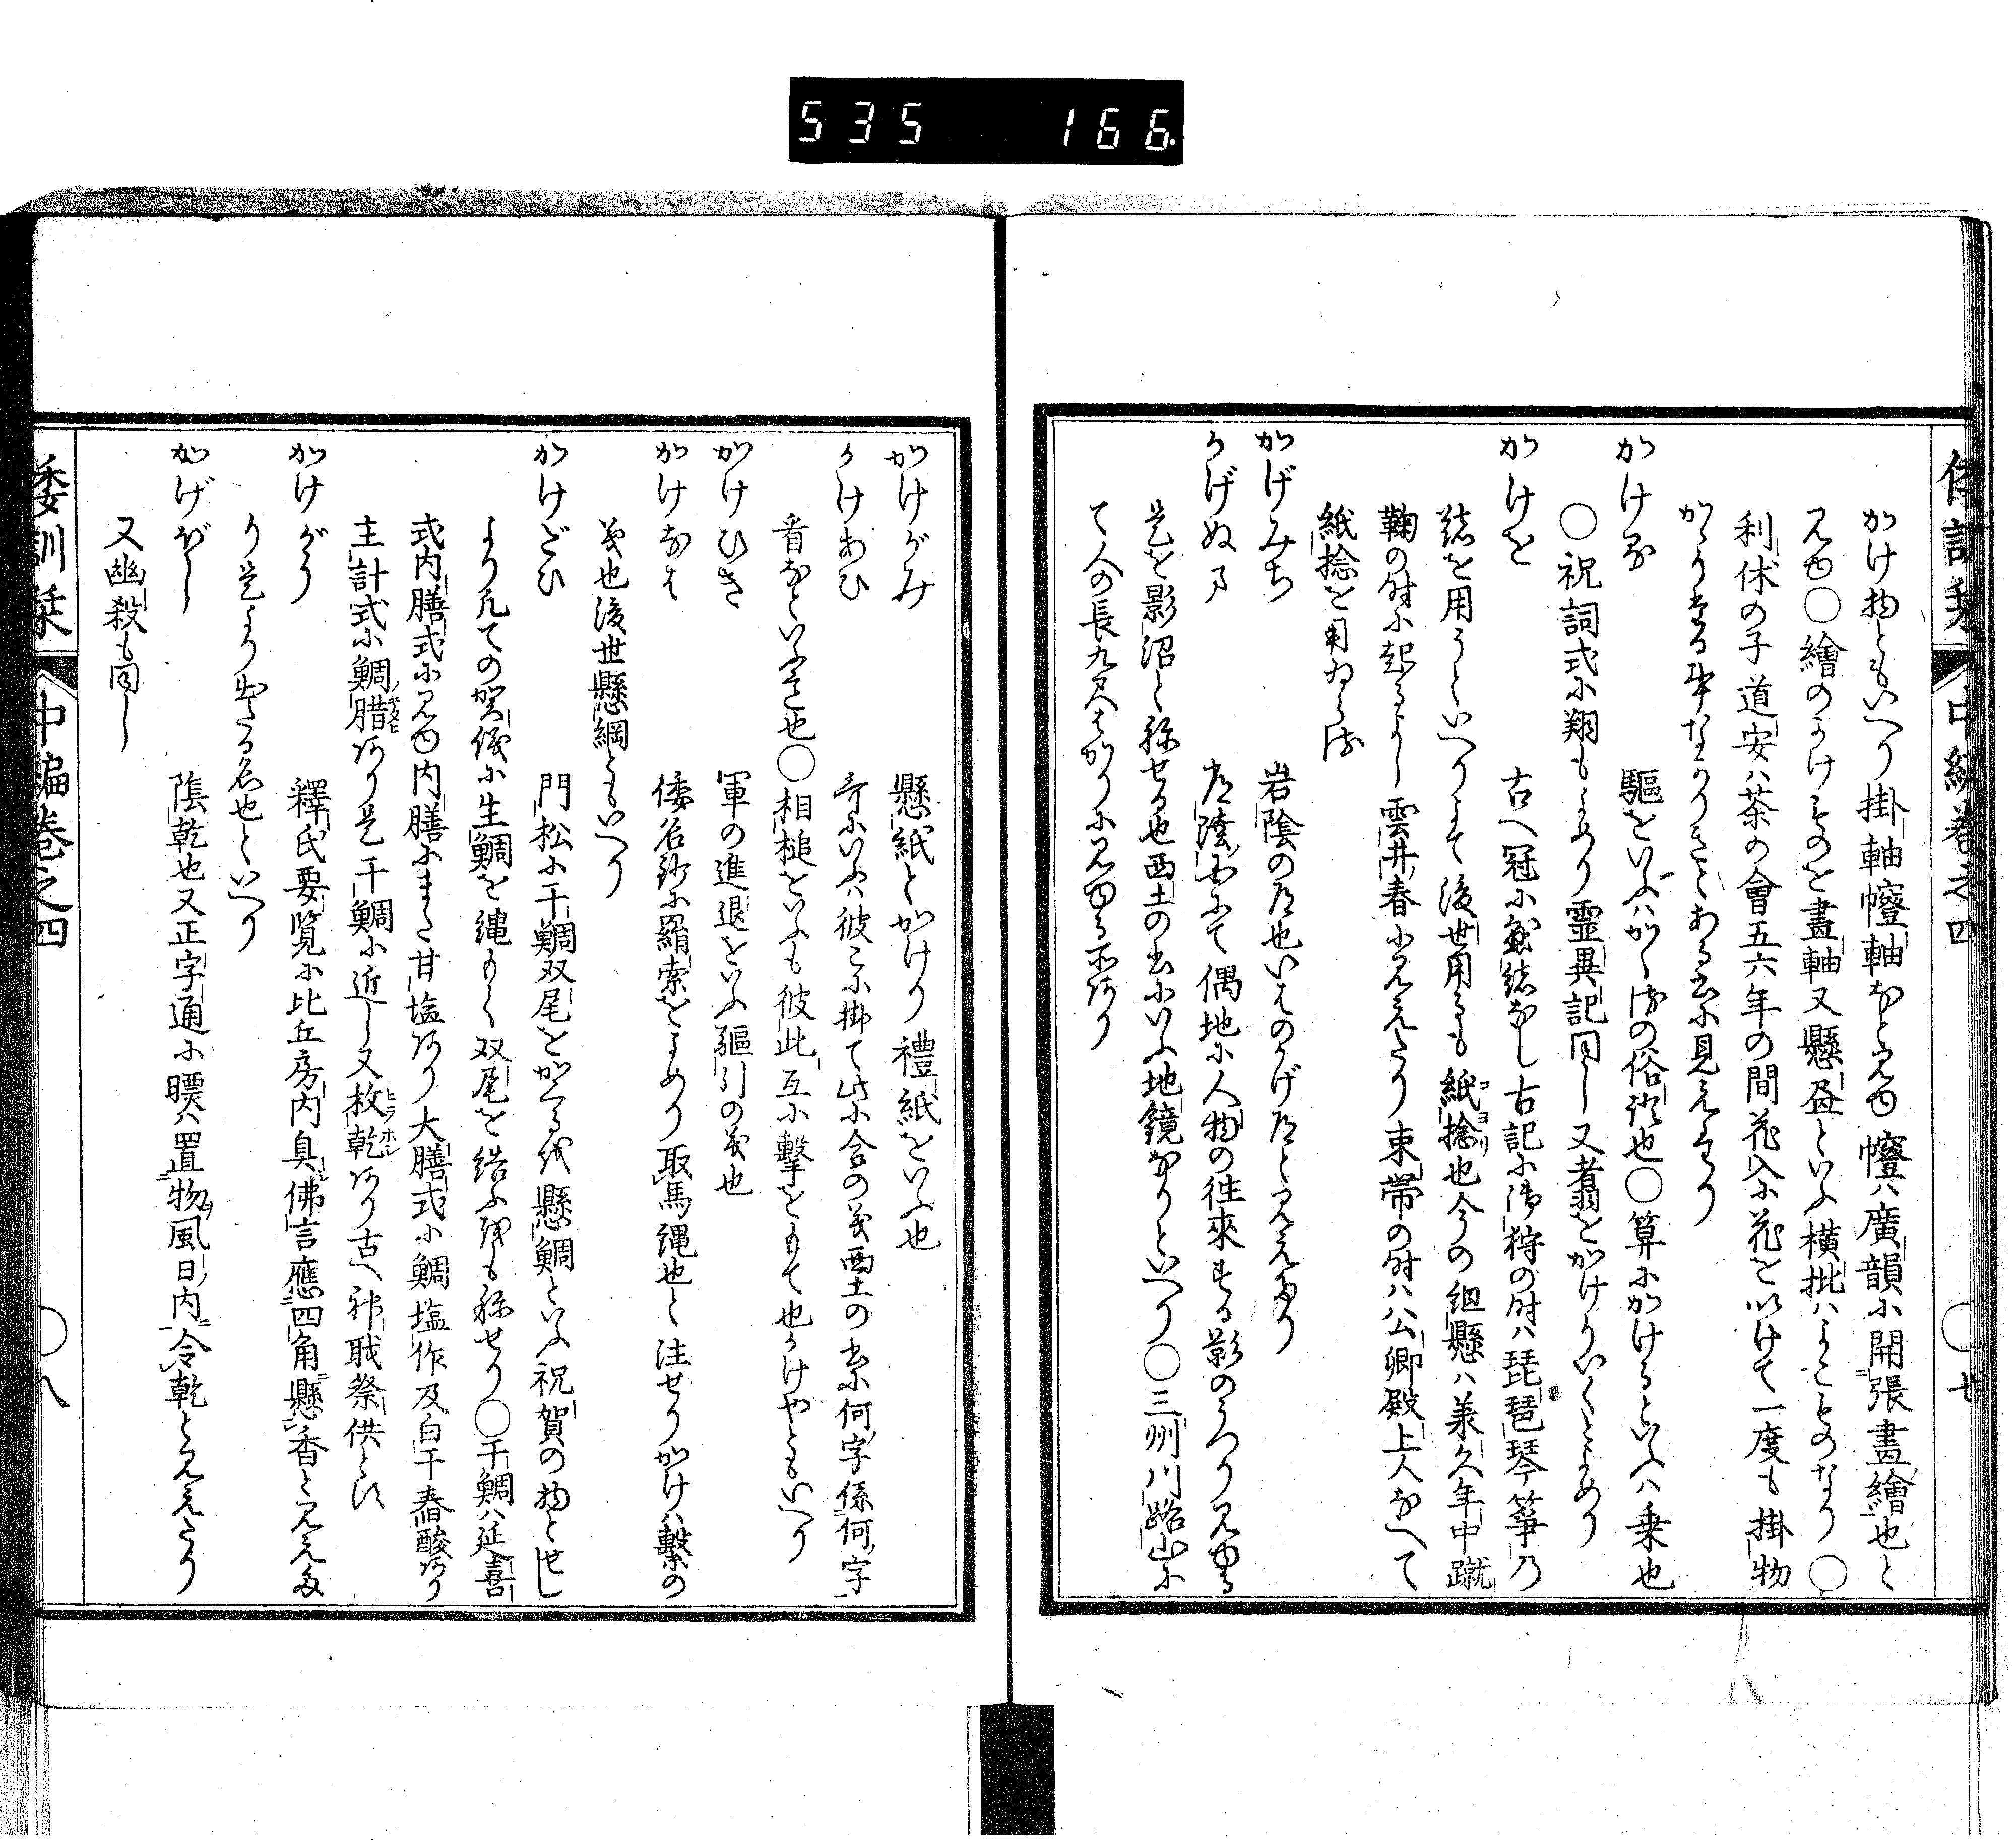 535 166
倭訓栞 中編巻之四 ○廿
かけ物ともいへり掛軸㡧軸なと見ゆ㡧ハ廣韻に開張畫繪也と
見ゆ○繪のかけものを畫軸又懸盈といふ横批ハよこものなり○
利休の子道安ハ茶の會五六年の間花入に花を以けて一度も掛物
かゝりたる事なかりきとある書に見えたり
かける 驅をいふハかくるの俗語也○算にかけるといふハ乗也
○祝詞式に翔もよめり霊異記同し又翥をかけりいくとよめり
かけを 古へ冠に懸緒なし古記に御狩の時ハ琵琶琴箏乃
緒を用うといへりさて後世用るも紙捻也今の組懸ハ兼久年中蹴
鞠の時に起るよし雲井春に見えたり束帯の時ハ公卿殿上人なへて
紙捻を用ゐらる
かげみち 岩陰の道也いはのかげ道と見えたり
かげぬま 陸奥にて偶地に人物の往來する影のうつり見ゆる
是を影沼と称せる也西土の書にいふ地鏡なりといへり○三州川路山に
て人の長九尺はかりに見ゆる所あり
かけがみ 懸紙とかけり禮紙をいふ也
かけあひ 哥にいふハ彼に掛て此に合の義西土の書に何字係何字
看なといふ是也○相槌をいふも彼此互に撃をもて也かけやともいへり
かけひき 軍の進退をいふ驅引の義也
かけなは 倭名鈔に羂索をよめり取馬縄也と注せりかけハ繫の
義也後世懸綱ともいへり
かけだひ 門松に干鯛双尾をかくるを懸鯛といふ祝賀の物とせし
より凡ての賀儀に生鯛を縄もて双尾を結ふをも称せり○干鯛ハ延喜
式内膳式に見ゆ内膳にまた甘塩あり大膳式に鯛塩作及白干春酸あり
主計式に鯛腊あり是干鯛に近し又枚乾あり古へ神職祭供とす
かけがう 釋氏要覧に比丘房内臭佛言應四角懸香と見えた
り是より出たる名也といへり
かげぼし 陰乾也又正字通に㬓ハ置物風日内令乾と見えたり
又幽殺も同し
倭訓栞 中編巻之四 ○八